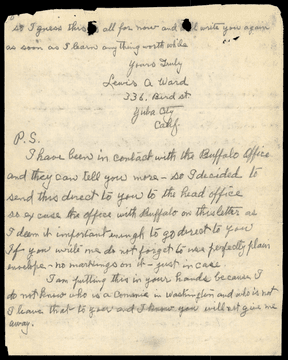 so I guess this is all for now and will write you again
as soon as I learn anything worth while
Yours Truly
Lewis A Ward
336 Bird st.
Yuba City
Calif.
P.S.
I have been in contact with the Buffalo Office
and they can tell you more - so I decided to
send this direct to you to the head office
so ey case the office with Buffalo on this letter as
I deem it important enough to go direct to you
If you write me do not forget to use a perfectly plain
envelope - no markings on it - just in case
I am putting this in your hands because I
do not know who is a Commie in Washington and who is not
I leave that to you and I know you will not give me
away.